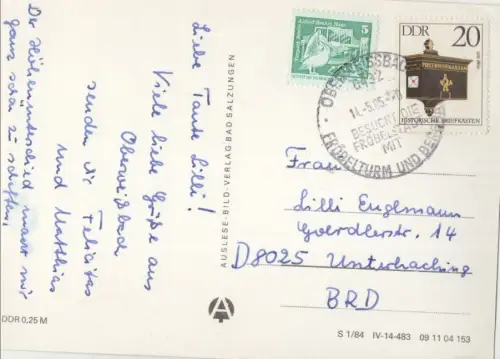 Liebe Tante Lilli!
Viele liebe Grüße aus
Oberweißbach
senden Dir Felicitas
und Matthias
Der Höhenunterschied macht mir
ganz schön zu schaffen.
AUSLESE-BILD-VERLAG·BAD SALZUNGEN
5
DDR 20
POSTWERTZEICHEN
HISTORISCHE BRIEFKÄSTEN
BESUCHT DIE
FRÖBELSTADT
MIT
FRÖBELTURM UND
Frau
Lilli Englmann
Goerdlerstr. 14
D8025 Unterhaching
BRD
DDR 0,25 M
S 1/84 IV-14-483 09 11 04 153